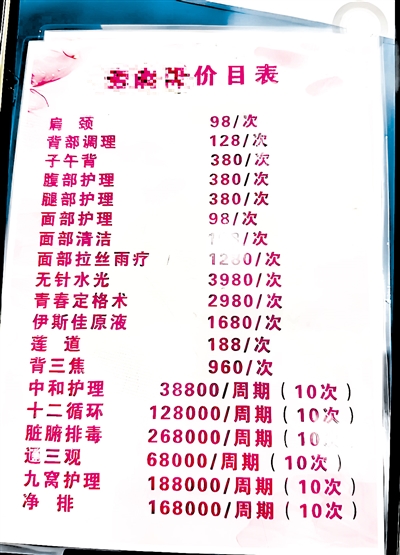 价目表
肩 颈 98/次
背部调理 128/次
子午背 380/次
腹部护理 380/次
腿部护理 380/次
面部护理 98/次
面部清洁 /次
面部拉丝雨疗 1280/次
无针水光 3980/次
青春定格术 2980/次
伊斯佳原液 1680/次
莲 道 188/次
背三焦 960/次
中和护理 38800/周期(10次)
十二循环 128000/周期(10次)
脏腑排毒 268000/周期(10次
通三观 68000/周期(10次)
九窝护理 188000/周期(10次)
净 排 168000/周期(10次)